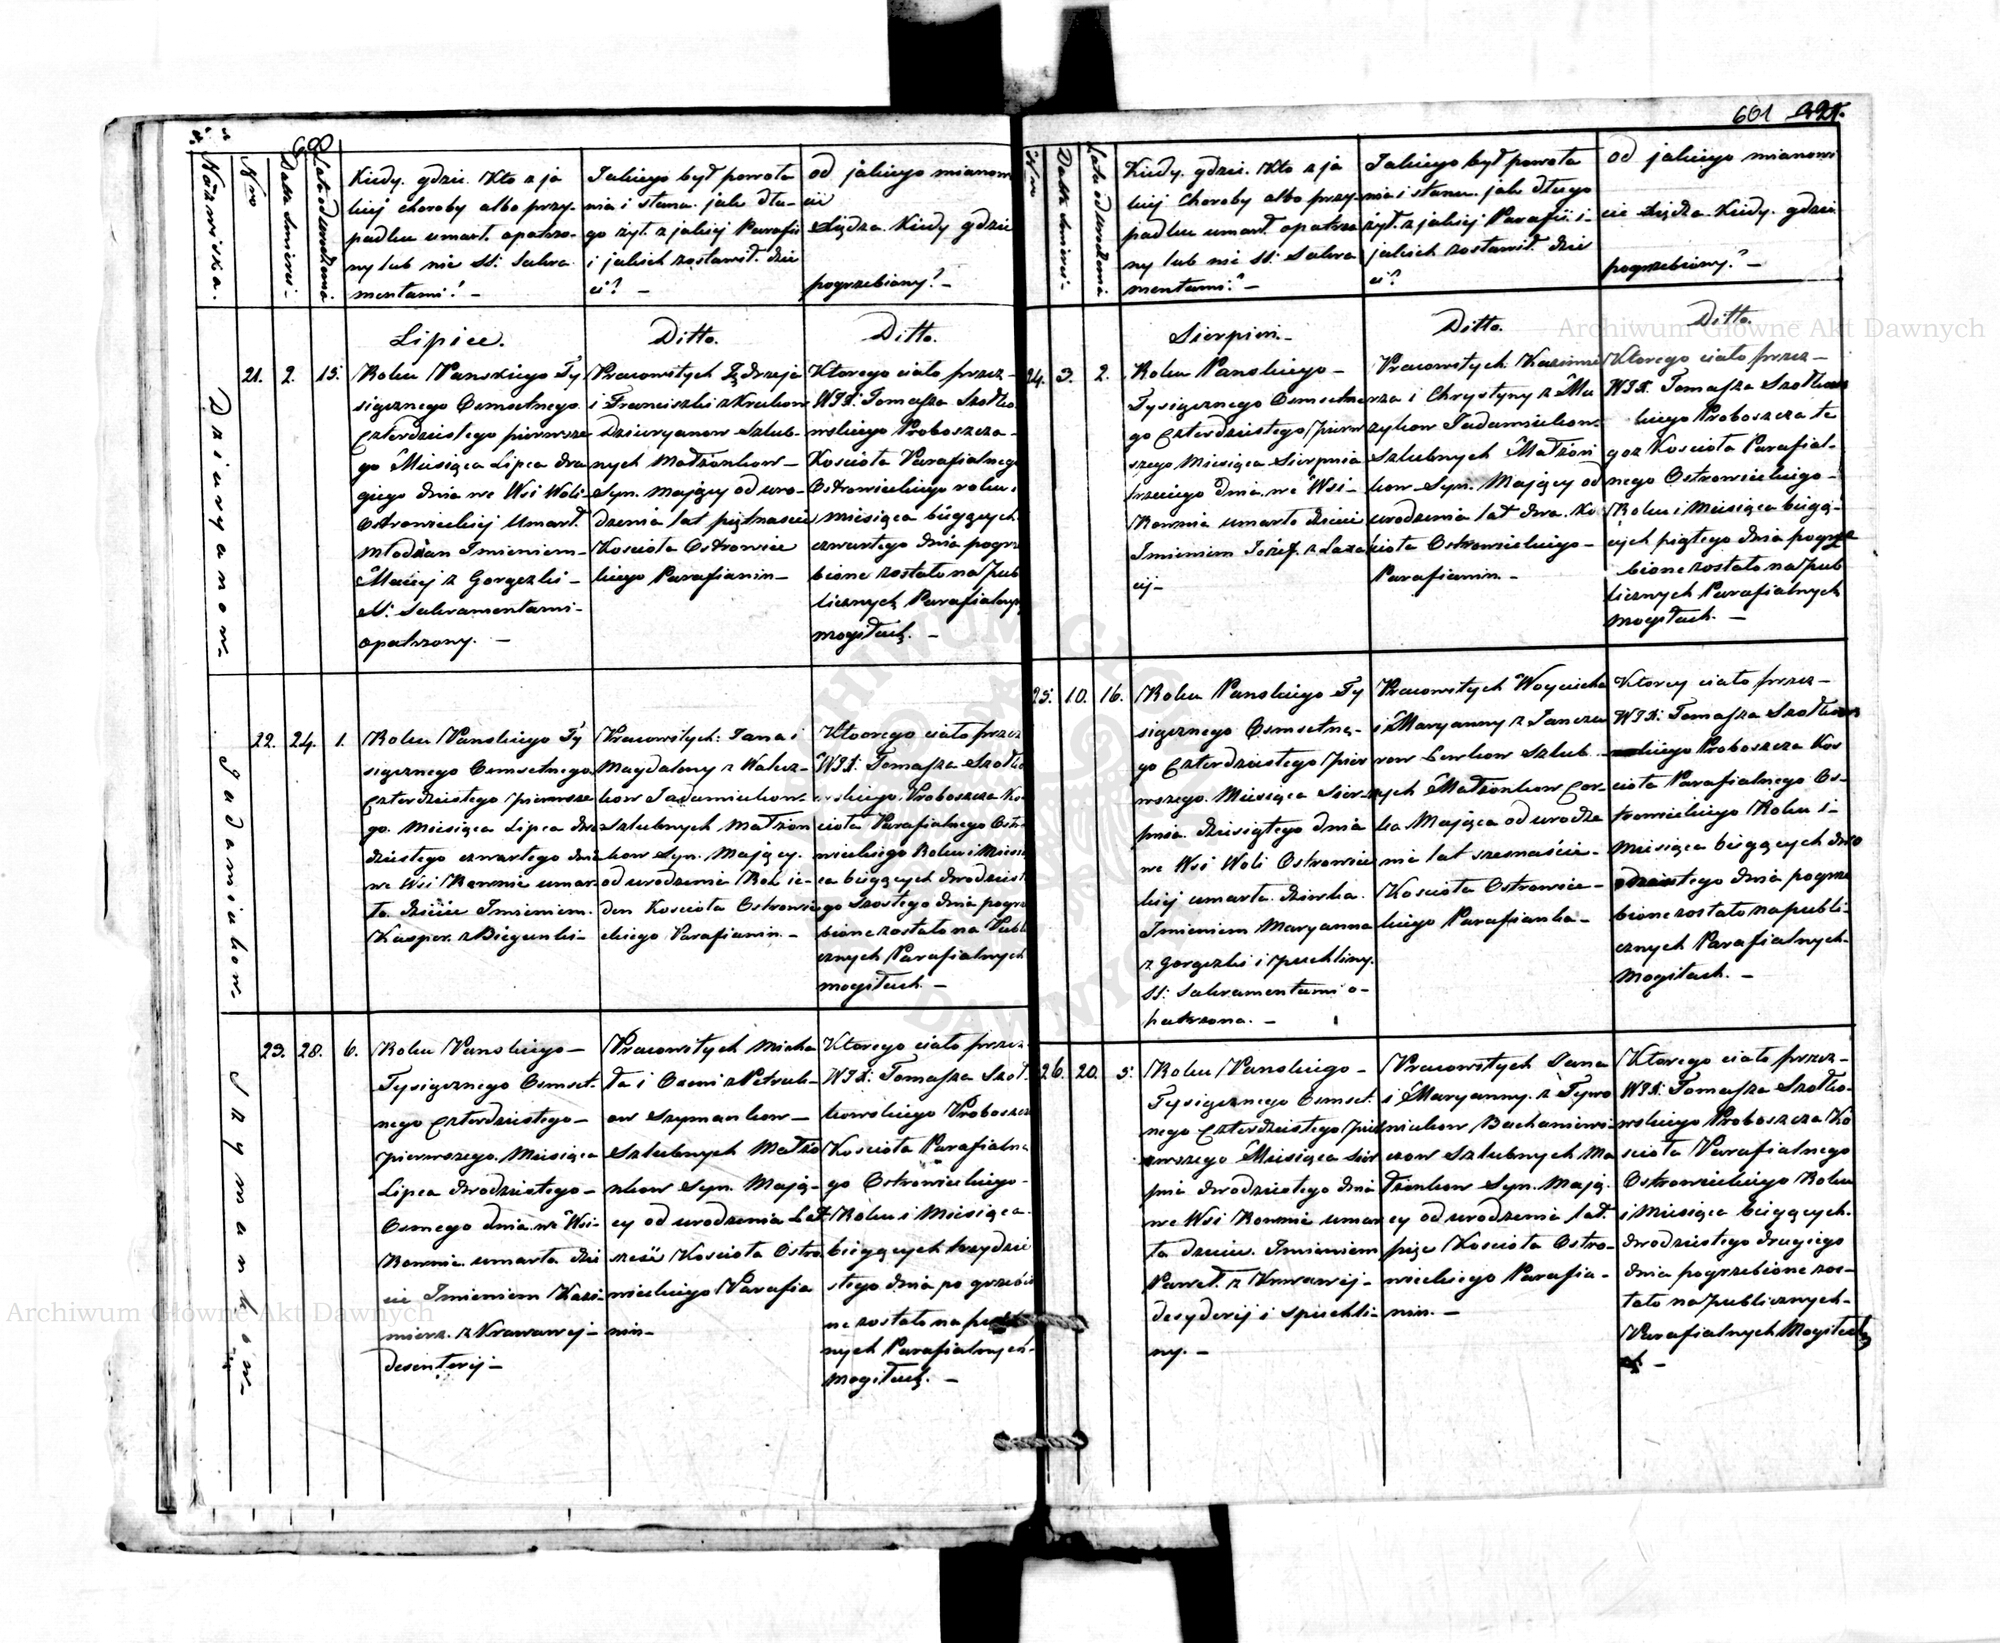 601 321.
Nazwiska.
Nro
Data śmierci
Lata od urodzenia
Kiedy. gdzie. Kto z ja
kiej choroby albo przy-
padku umarł. opatrzo-
ny lub nie SS: Sakra
mentami? -
Jakiego był powoła
nia i stanu. jak dłu-
go żył. z jakiej Parafii
i jakich zostawił. dzie
ci? -
od jakiego mianow
icie
Xiędza. Kiedy gdzie
pogrzebiony? -
Lipiec.
Ditto.
Ditto.
Dziuryanow.
21. 2. 15.
Roku Panskiego Ty
siącznego Osmsetnego
Czterdziestego pierwsze
go Miesiąca Lipca dru
giego dnia we Wsi Woli-
Ostrowieckiej Umarł.
Młodzian Imieniem-
Maciej z Gorączki -
SS: Sakramentami-
opatrzony. -
Pracowitych Jędrzeja
i Franciszki z Krukow
Dziuryanow Szlub-
nych Małżonkow -
Syn. Mający od uro-
dzenia lat piętnascie
Koscioła Ostrowiec
kiego Parafianin -
Ktorego ciało przez -
WJX: Tomasza Szołko
wskiego Proboszcza -
Kosciola Parafialnego
Ostrowieckiego roku i
Miesiąca bieżących
czwartego dnia pogrze
bione zostało na pub
licznych Parafialnych
mogiłach. -
Jadamiukow.
22. 24. 1.
Roku Panskiego Ty
siącznego Osmsetnego
Czterdziestego pierwsze
go. Miesiąca Lipca dwu
dziestego czwartego dnia
we Wsi Rownie umar
ło dziecie Imieniem.
Kasper. z Biegunki-
Pracowitych: Jana i
Magdaleny z Walcz-
kow Jadamiukow-
Szlubnych Małżon
kow Syn. Mający.
od urodzenia Rok ie-
den Kosciola Ostrowie
ckiego Parafianin. -
Ktorego ciało przez
WJX: Tomasza Szołko
wskiego Proboszcza Ko
sciola Parafialnego Ostro
wieckiego Roku i Miesi
ca bieżących dwudziest
go szostego dnia pogrze
bione zostało na Publi
cznych Parafialnych
mogiłach -
Szymankow-
23. 28. 6.
Roku Panskiego -
Tysiącznego Osmset-
nego Czterdziestego -
pierwszego. Miesiąca
Lipca dwudziestego -
Osmego dnia we Wsi-
Rownie umarła dzie
cie Imieniem Kazi-
mierz. z Krwawej-
desenterij -
Pracowitych Micha
ła i Oxeni z Petruk-
ow Szymankow -
Szlubnych Małżo
nkow Syn. Mają-
cy od urodzenia Lat
szesć Kosciola Ostro
wieckiego Parafia
nin-
Ktorego ciało przez-
WJX: Tomasza Szoł.
kowskiego Proboszcza
Kosciola Parafialne
go Ostrowieckiego-
Roku i Miesiąca.
bieżących trzydzie
stego dnia pogrzebio
ne zostało na publi
nych Parafialnych
Mogiłach. -
Nro
Data śmierci-
Lata od urodzenia
Kiedy. gdzie. Kto z ja
kiej Choroby albo przy
padku umarł. opatrzo
ny lub nie SS: Sakra
mentami? -
Jakiego był powoła
nia i stanu. jak długo
żył. z jakiej Parafii i-
jakich zostawił. dzie
ci?
od jakiego mianowi
cie Xiędza Kiedy. gdzie
pogrzebiony? -
Sierpien.-
Ditto.
Ditto.
24. 3. 2.
Roku Panskiego -
Tysiącznego Osmsetne
go Czterdziestego pierw
szego Miesiąca Sierpnia
trzeciego dnia we Wsi-
Rownia umarło dziecie
Imieniem Józef.
Pracowitych: Kazimie
rza i Chrystyny z Ma
zykow Jadamiukow.
Szlubnych Małżon
kow Syn. Mający od
urodzenia lat dwa. Ko
sciola Ostrowieckiego -
Parafianin. -
Ktorego ciało przez -
WJX. Tomasza Szołkows
kiego Proboszcza te
goz Kosciola Parafial-
nego Ostrowieckiego-
Roku i Miesiąca bieżą-
cych piątego dnia pogrze
bione zostało na pub
licznych Parafialnych
Mogiłach. -
25. 10. 16.
Roku Panskiego Ty
siącznego Osmsetne-
go Czterdziestego pier
wszego. Miesiąca Sier-
pnia. dziesiątego dnia
we Wsi Woli Ostrowiec
kiej umarła. dziewka.
Imieniem Maryanna
z gorączki i puchliny.
SS: Sakramentami o-
patrzona. -
Pracowitych Woyciecha
i Maryanny z Janczu
row Szlub
nych Małżonkow Cor-
ka Mająca od urodze
nia lat szesnaście-
Kosciola Ostrowiec -
kiego Parafianka -
Ktorey ciało przez -
WJX: Tomasza Szołkows
kiego Proboszcza Kos
ciola Parafialnego Os-
trowieckiego Roku i-
Miesiąca bieżących dwu
dziestego dnia pogrze
bione zostało na publi-
cznych Parafialnych-
Mogiłach. -
26. 20. 5.
Roku Panskiego -
Tysiącznego Osmset
nego Czterdziestego pie
rwszego Miesiąca Sier
pnia dwudziestego dnia
we Wsi Rownia umar
ła dziecie. Imieniem
Paweł. z Krwawej -
desyderij i spuchli-
ny. -
Pracowitych Jana
i Maryanny. z Tywo
niukow
czow Szlubnych Ma
łżonkow Syn. Mają.
cy od urodzenia lat.
pięc Kosciola Ostro-
wieckiego Parafia-
nin. -
Ktorego ciało przez -
WJX: Tomasza Szołko-
wskiego Proboszcza Ko
sciola Parafialnego
Ostrowieckiego Roku
i Miesiąca bieżących.
dwudziestego drugiego
dnia pogrzebione zos-
tało na publicznych-
Parafialnych Mogiłach
Archiwum Główne Akt Dawnych
Archiwum Główne Akt Dawnych